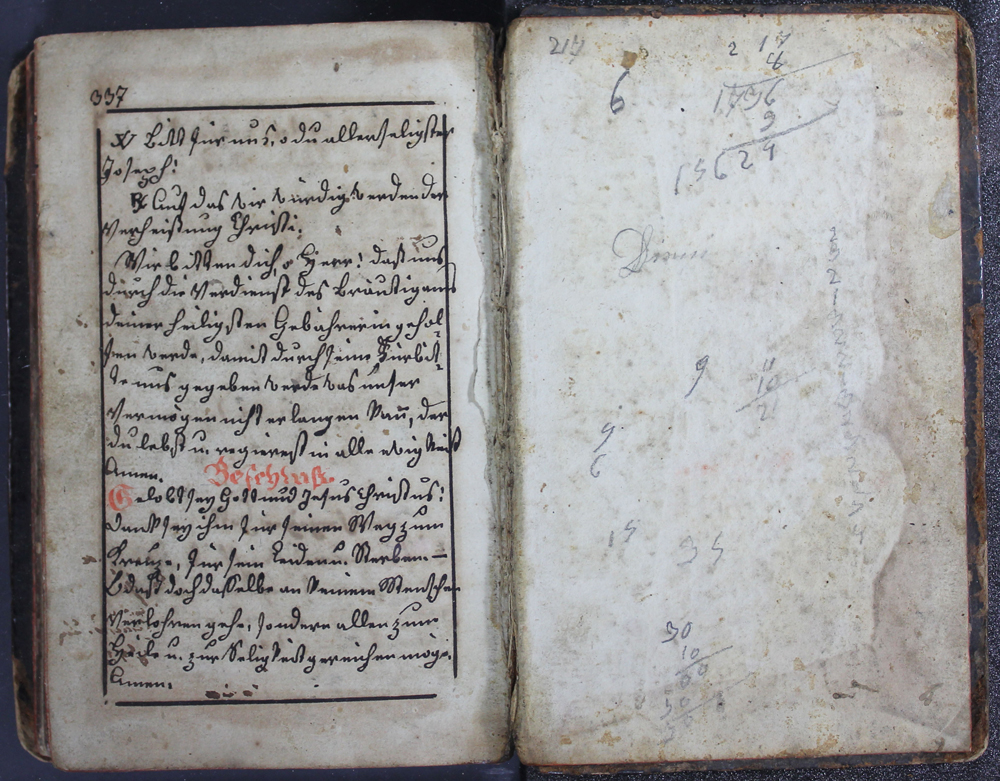 337
V Bitt für uns, o du allerseligster
Joseph!
R Auf das wir würdig werden der
Verheißung Christi.
Wir bitten dich, o Herr! daß uns
durch die Verdienst des Bräutigams
deiner heiligsten Gebährerin gehol-
fen werde, damit durch seine Fürbit-
te uns gegeben werde was unser
Vermögen nicht erlangen kan̄, der
du lebst u. regierest in alle ewigkeit
Amen.
Beschluß.
Gelobt sey Gott und Jesus Christus!
Dank sey ihm für seinen Weg zum
Kreuze, für sein Leiden u. Sterben —
O daß doch dasselbe an keinem Menschen
Verlohren gehe, sondern allen zum
Heile u. zur Seligkeit gereichen möge.
Amen.
217
2 17
4
6
1736
9
15624
9
11
10
2
9
6
15
35
30
10